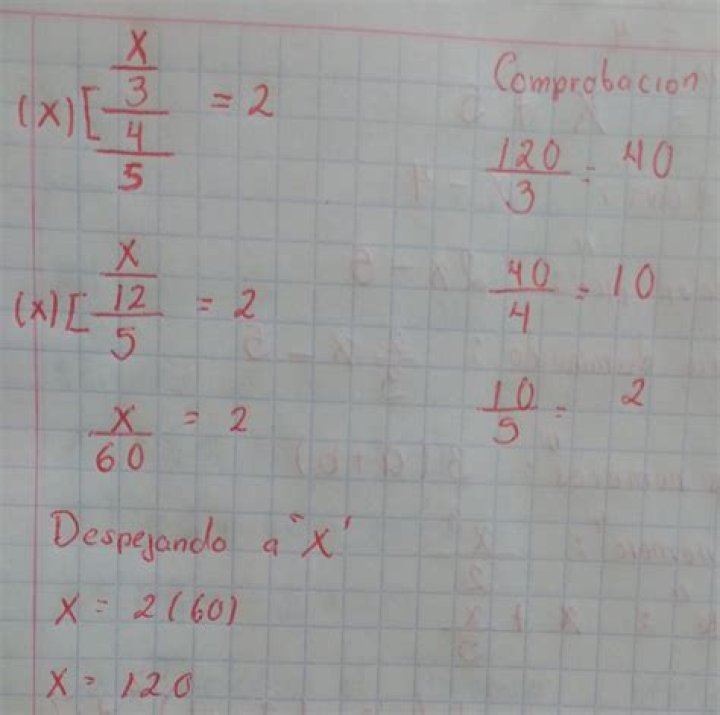 (x)[x/3/4/5 = 2
(x)[x/12/5 = 2
x/60 = 2
Despejando a "x"
x = 2(60)
x = 120
Comprobacion
120/3 = 40
40/4 = 10
10/5 = 2